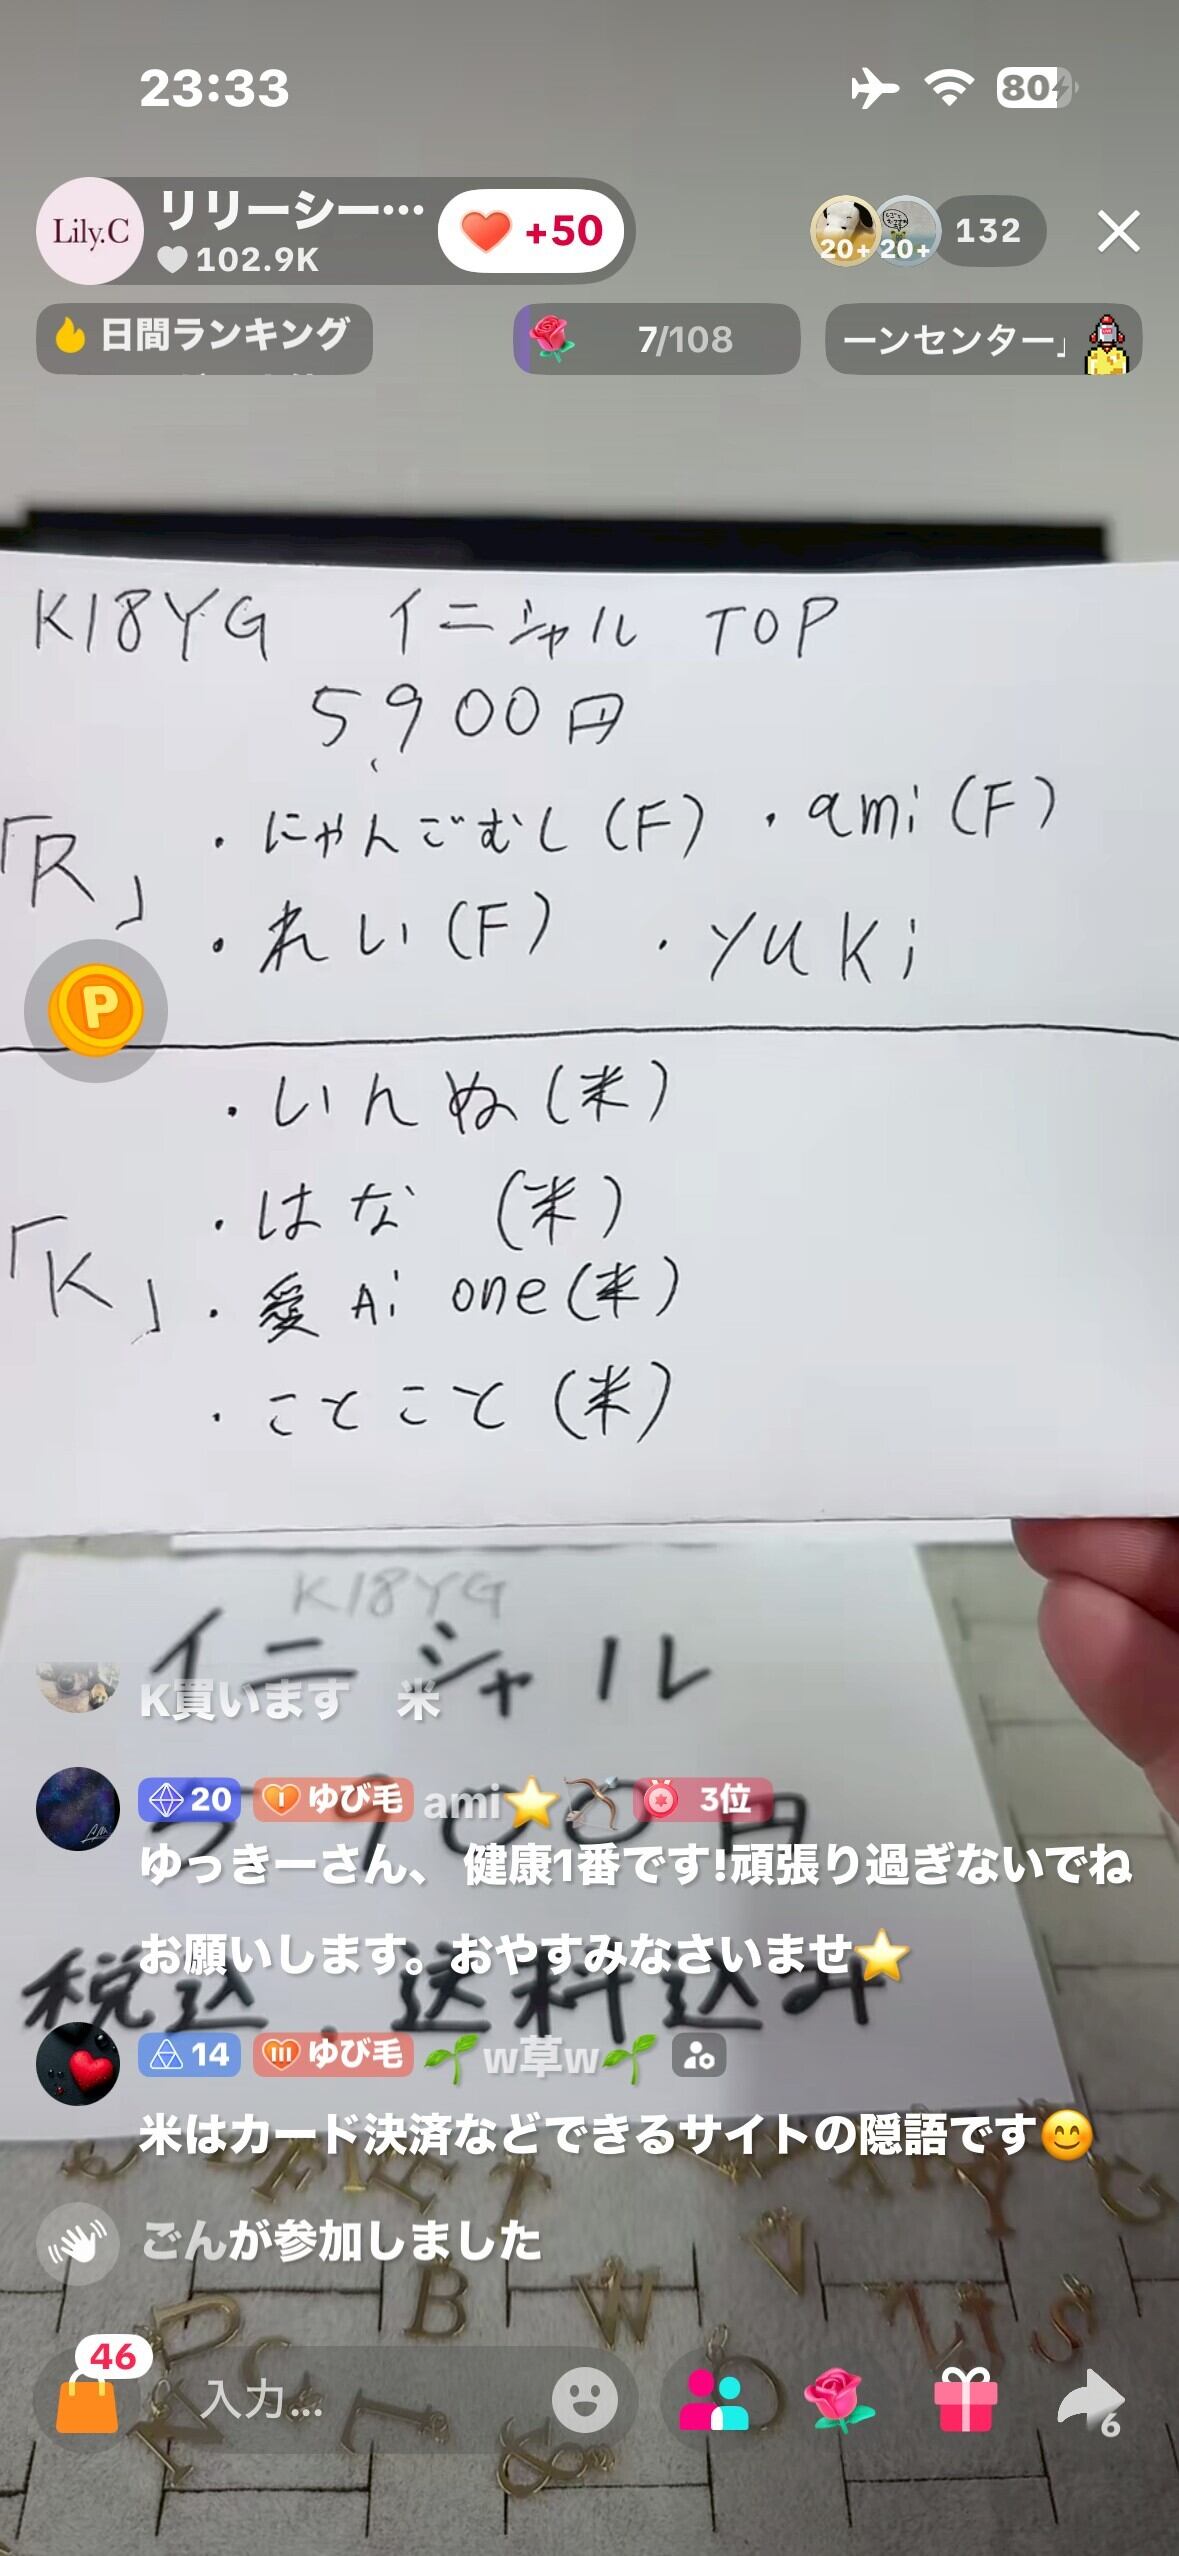 23:33
80
Lily.C
リリーシー…
102.9K
+50
20+
20+
132
日間ランキング
7/108
ーンセンター」
K18YG イニシャル TOP
5900円
「R」
・にゃんごむし(F) ・ami(F)
・れい(F) ・YUKi
P
「K」
・いんぬ(米)
・はな (米)
・愛Ai one(米)
・ことこと(米)
K18YG
イニシャル
K買います 米
5900円
20 ゆび毛 ami 3位
ゆっきーさん、健康1番です!頑張り過ぎないでね
お願いします。おやすみなさいませ
税込、送料込み
14 ゆび毛 w草w
米はカード決済などできるサイトの隠語です
ごんが参加しました
B W V
S
46
入力...
6